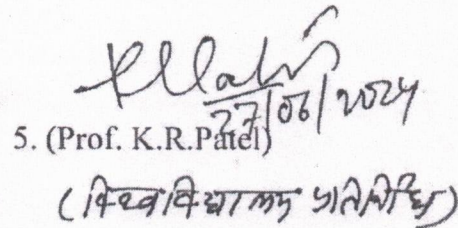 27/06/2024
5. (Prof. K.R.Patel)
(विश्वविद्यालय प्रतिनिधि)